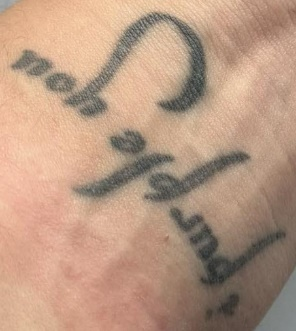 i purple you